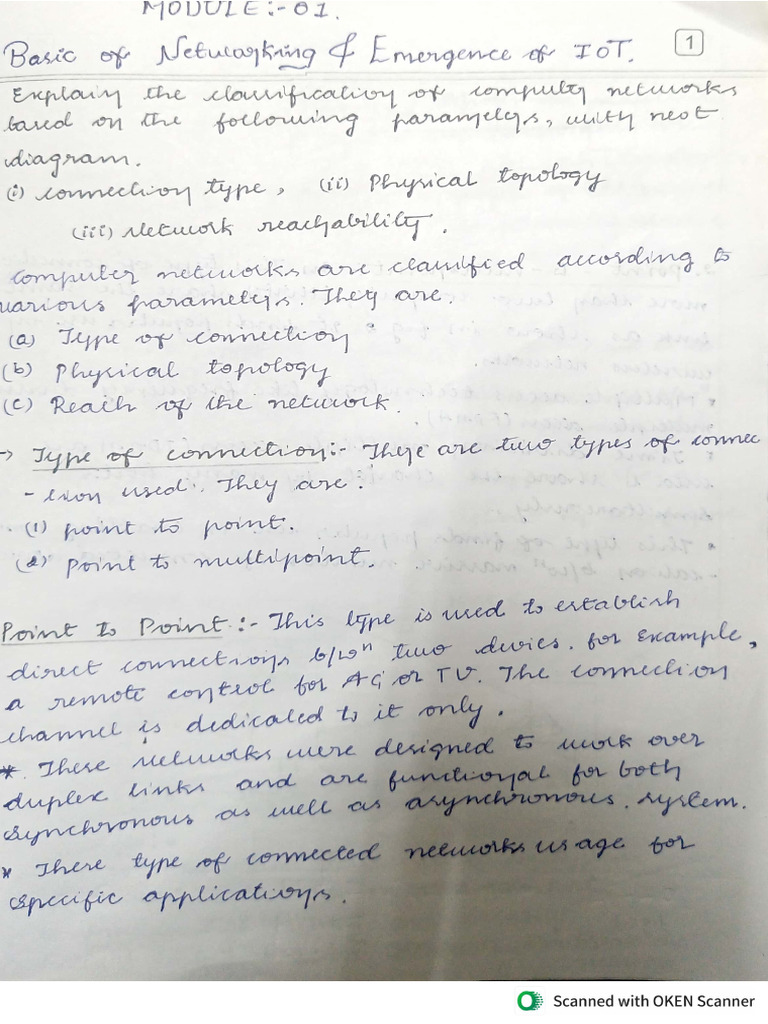 MODULE:-01.
1
Basic of Networking & Emergence of IoT.
Explain the classification of computer networks
based on the following parameters, with neat
diagram.
(i) connection type, (ii) Physical topology
(iii) Network reachability.
computer networks are classified according to
various parameters. They are.
(a) Type of connection
(b) Physical topology
(c) Reach of the network.
→ Type of connection:- There are two types of connec
-tion used. They are:
(1) point to point.
(2) point to multipoint.
Point to Point:- This type is used to establish
direct connections b/wn two devices. for example,
a remote control for AC or TV. The connection
channel is dedicated to it only.
*. These networks were designed to work over
duplex links and are functional for both
synchronous as well as asynchronous. system.
* These type of connected networks usage for
specific applications.
Scanned with OKEN Scanner